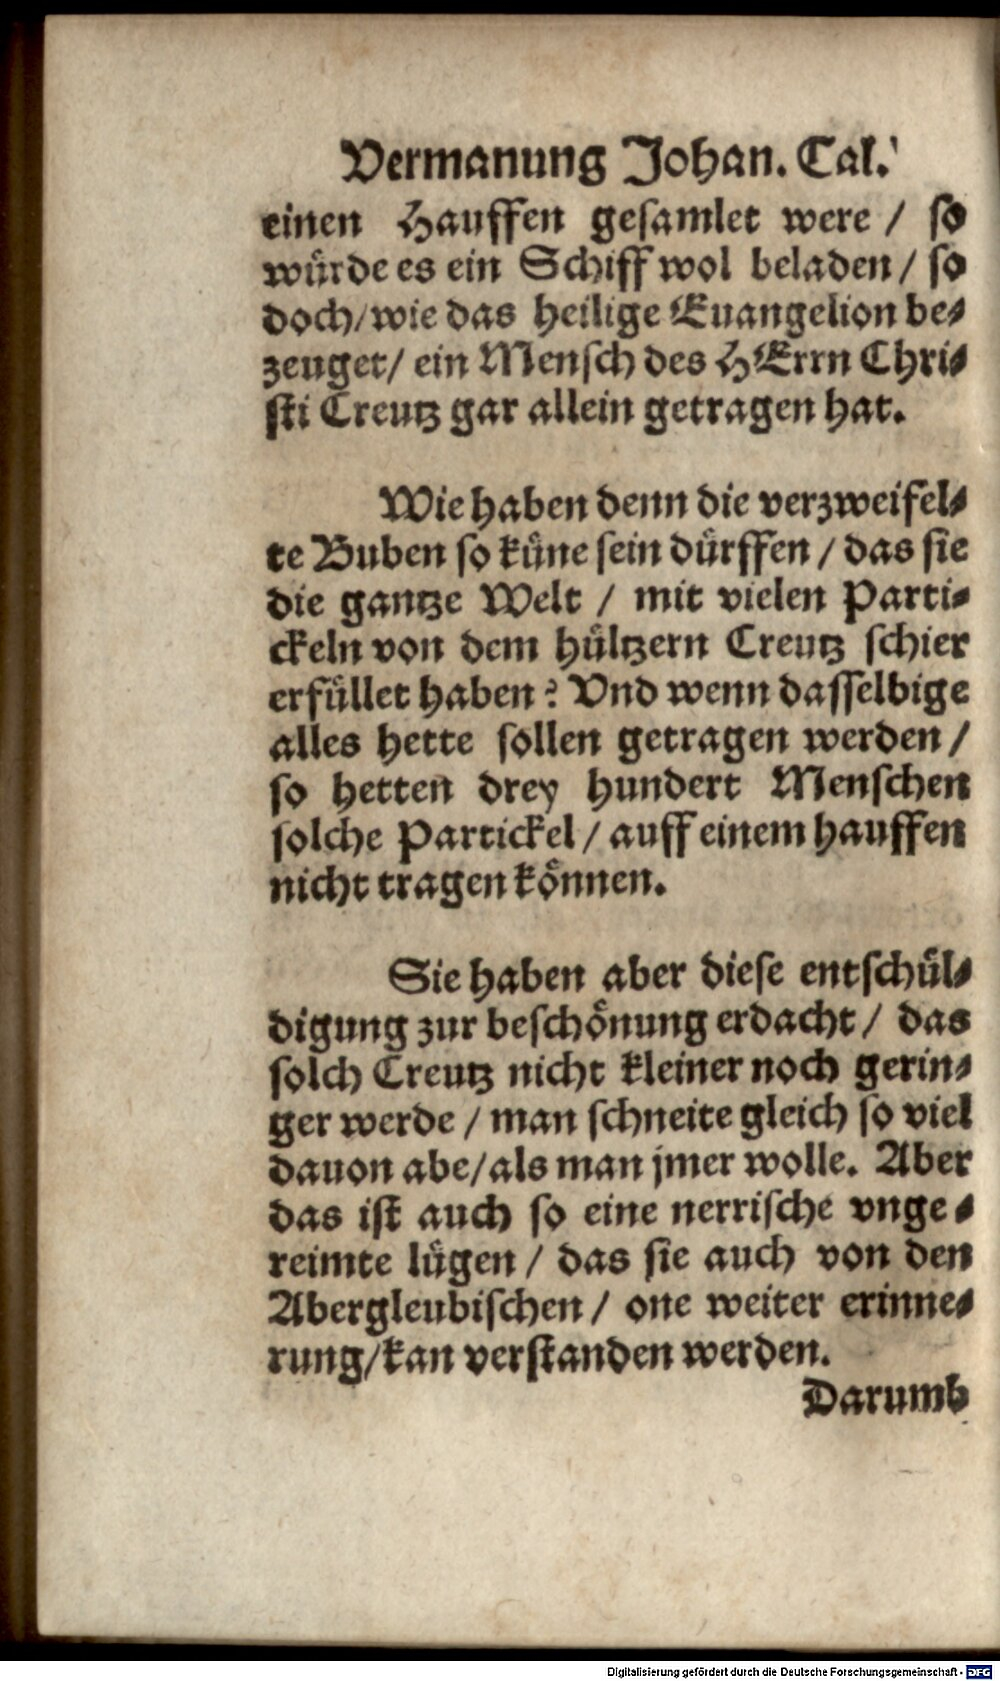 Vermanung Johan. Cal.
einen Hauffen gesamlet were / so
würde es ein Schiff wol beladen / so
doch / wie das heilige Euangelion be⸗
zeuget / ein Mensch des HErrn Chri⸗
sti Creutz gar allein getragen hat.
Wie haben denn die verzweifel⸗
te Buben so küne sein dürffen / das sie
die gantze Welt / mit vielen Parti⸗
ckeln von dem hültzern Creutz schier
erfüllet haben? Vnd wenn dasselbige
alles hette sollen getragen werden /
so hetten drey hundert Menschen
solche Partickel / auff einem hauffen
nicht tragen können.
Sie haben aber diese entschül⸗
digung zur beschönung erdacht / das
solch Creutz nicht kleiner noch gerin⸗
ger werde / man schneite gleich so viel
dauon abe / als man jmer wolle. Aber
das ist auch so eine nerrische vnge⸗
reimte lügen / das sie auch von den
Abergleubischen / one weiter erinne⸗
rung / kan verstanden werden.
Darumb
Digitalisierung gefördert durch die Deutsche Forschungsgemeinschaft - DFG